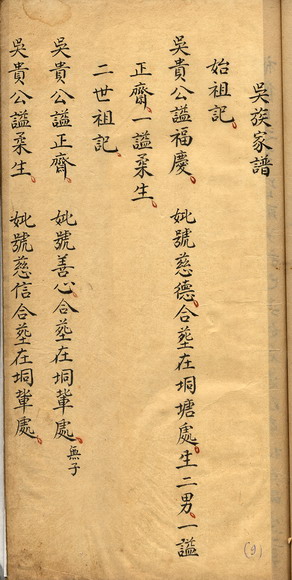 吳族家譜
始祖記
吳貴公謚福慶 妣號慈德合塟在垌塘處生二男一謚
正齋一謚柔生
二世祖記
吳貴公謚正齋 妣號善心合塟在垌輂處無子
吳貴公謚柔生 妣號慈信合塟在垌輂處
(9)